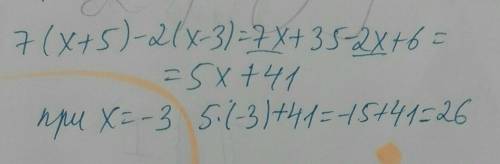 7(x+5)-2(x-3)=7x+35-2x+6=
=5x+41
при x=-3 5·(-3)+41=-15+41=26